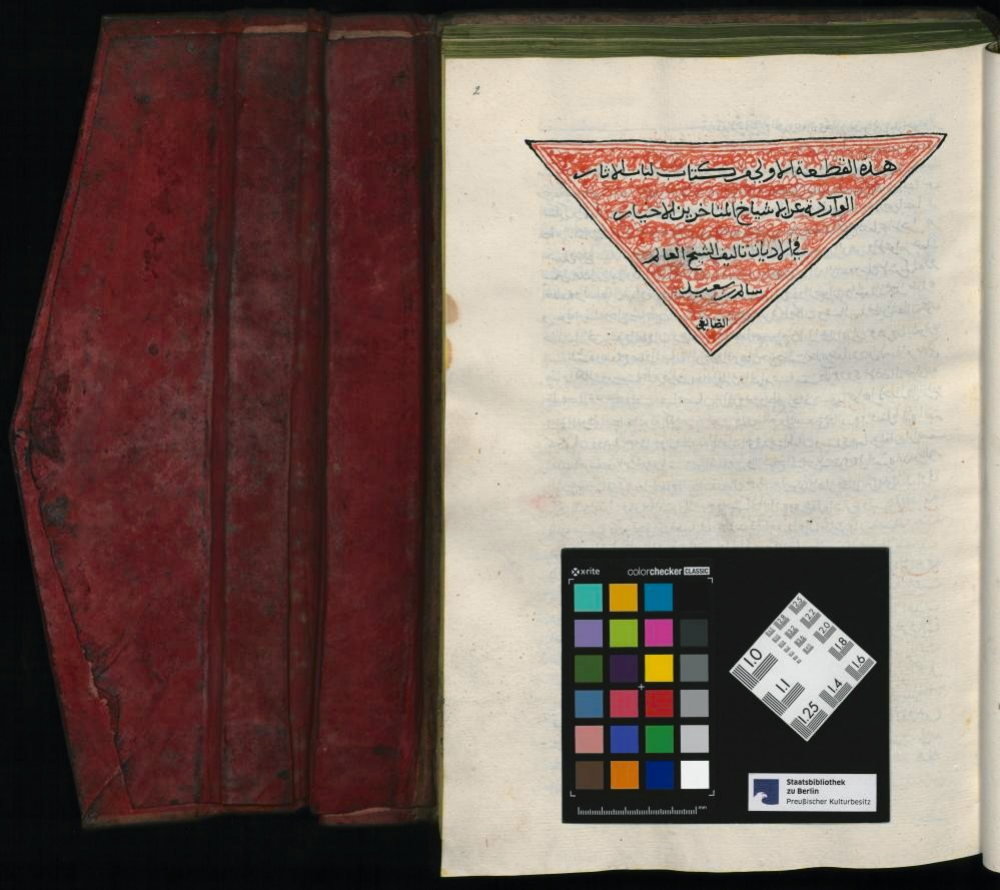 2
هذه القطعة الاولى من كتاب لباب الاثار
الواردة عن الاشياخ المتاخرين الاخيار
في الاديان تاليف الشيخ العالم
سالم بن سعيد
الصايغي
xrite colorchecker CLASSIC
2.5
2.2
2.0
1.8
1.6
1.0
1.1
1.4
1.25
Staatsbibliothek
zu Berlin
Preußischer Kulturbesitz
mm